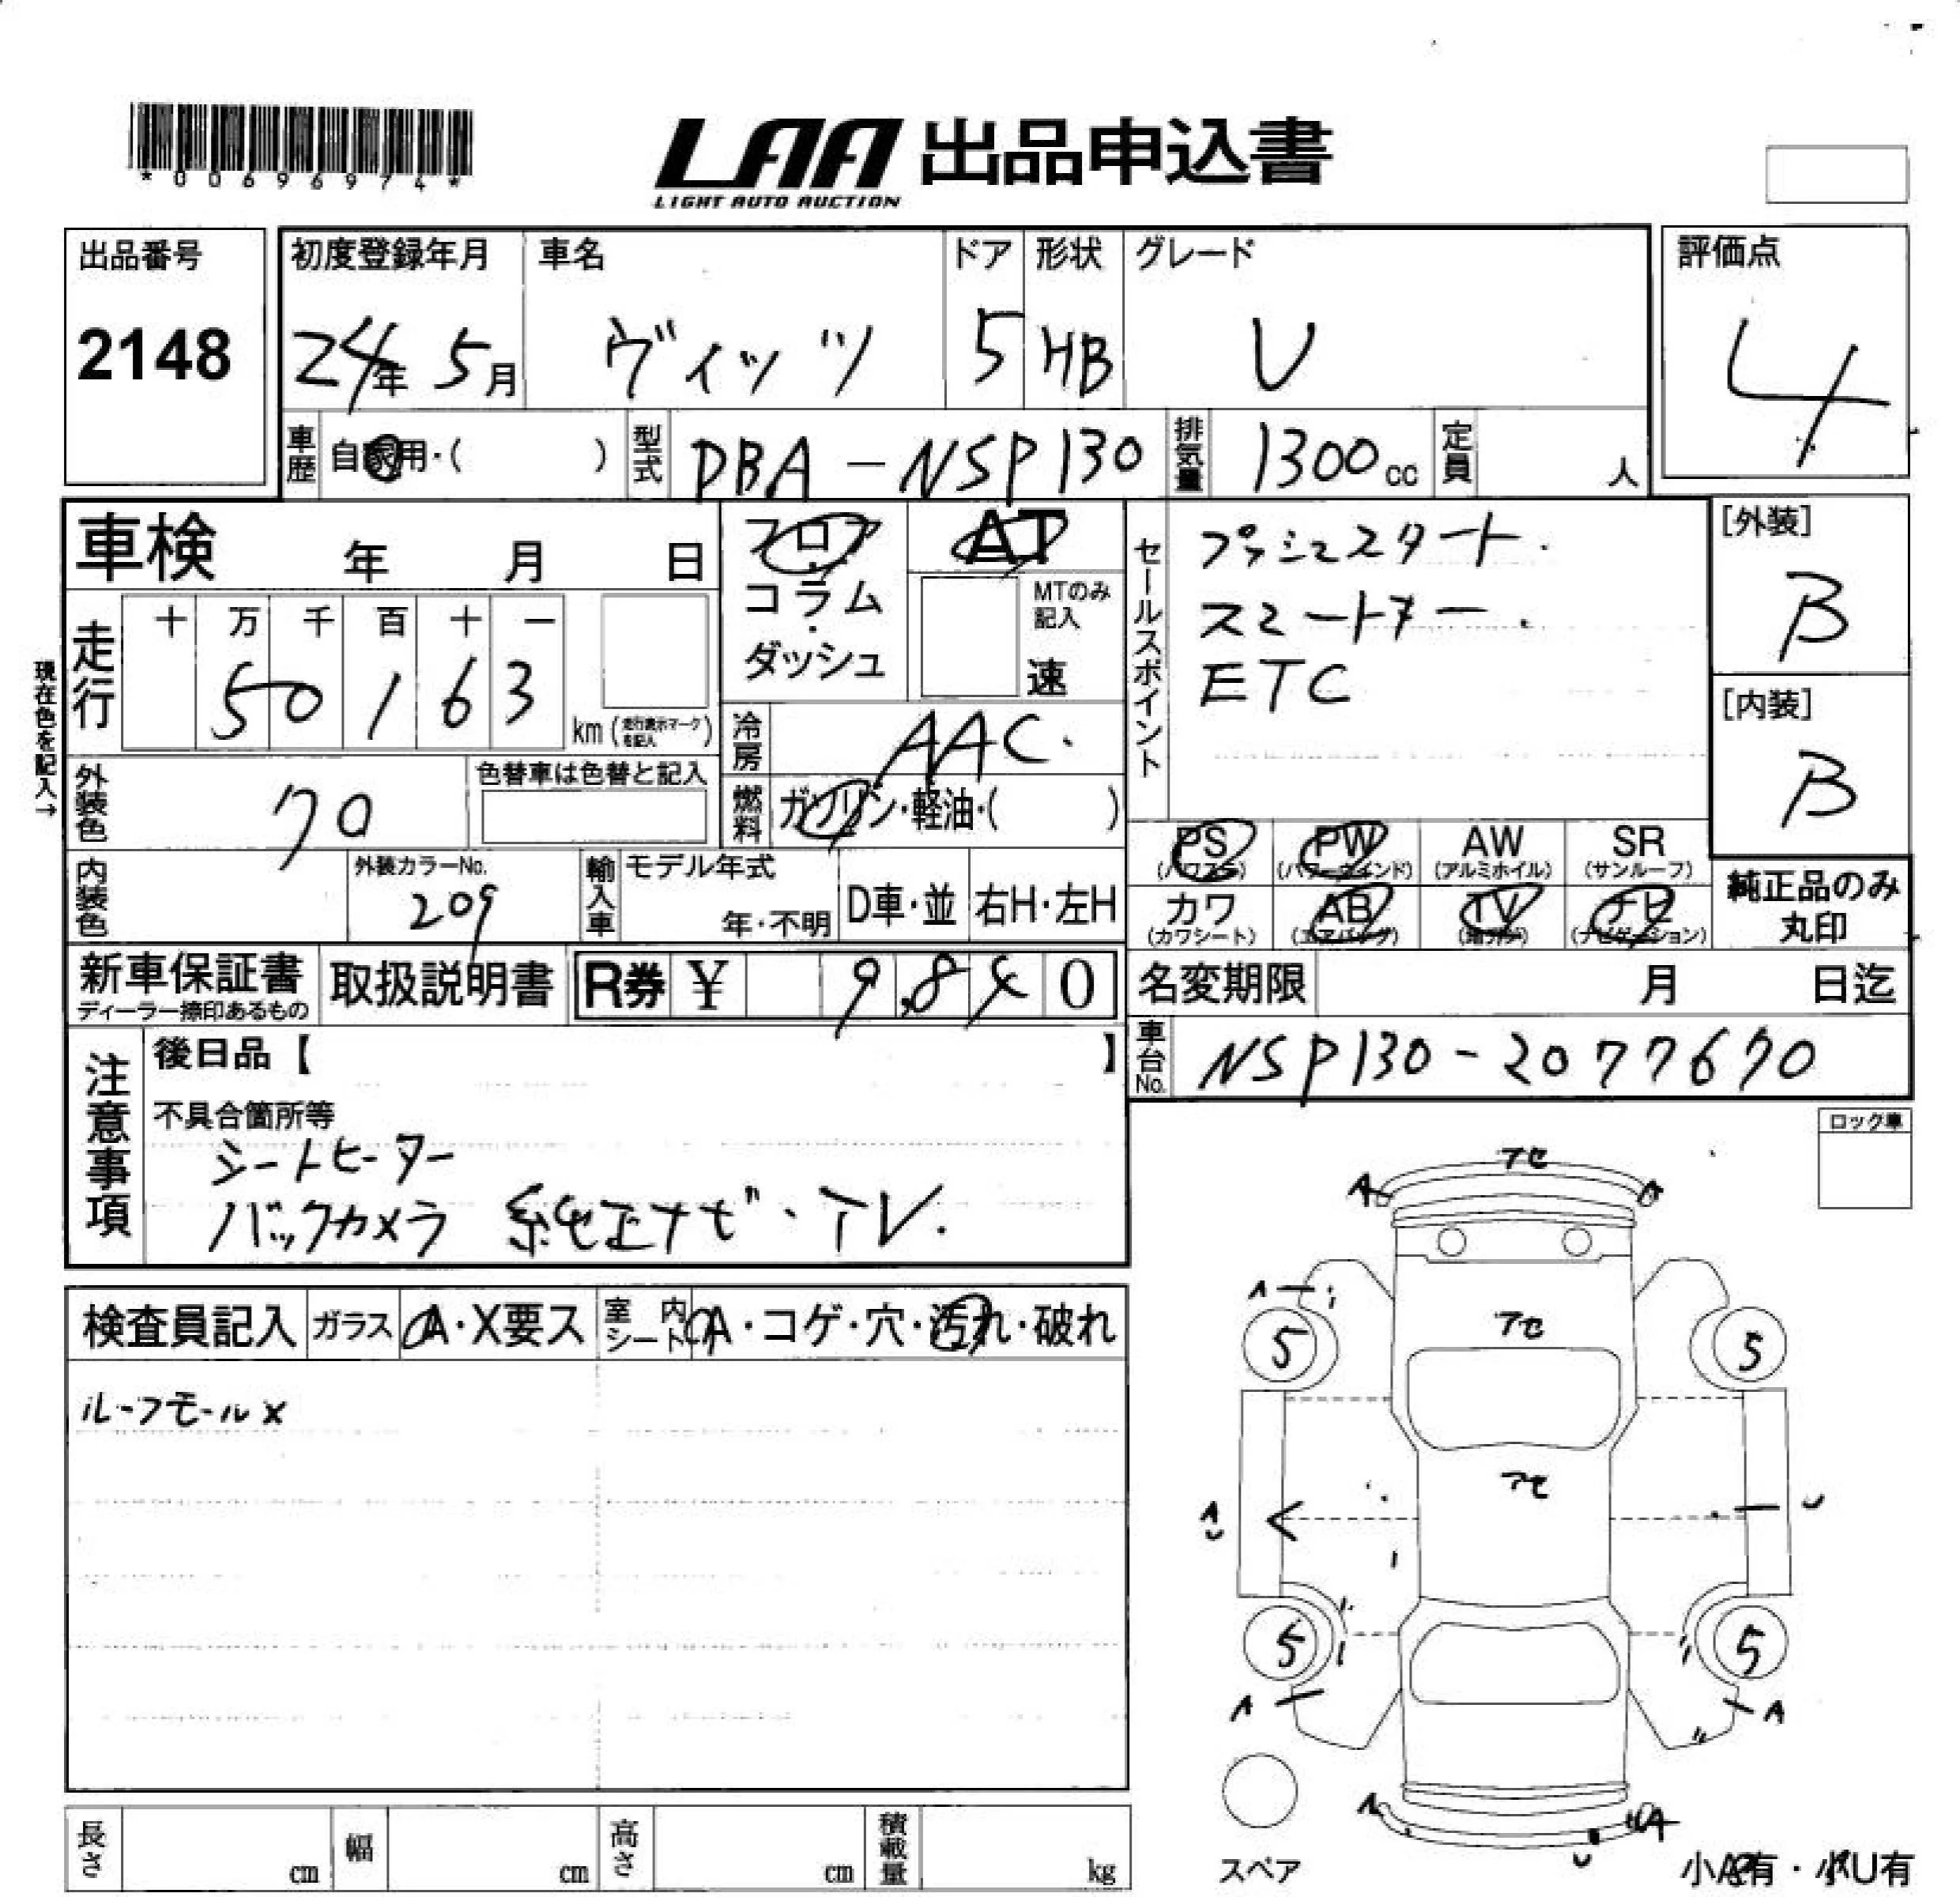 *00696974*
LAA 出品申込書
LIGHT AUTO AUCTION
出品番号
2148
初度登録年月
24年 5月
車名
ヴィッツ
ドア
5
形状
HB
グレード
U
評価点
4
車歴 自家用・( )
型式 DBA-NSP130
排気量 1300cc
定員 人
車検 年 月 日
フロア・コラム・ダッシュ
AT
MTのみ記入
速
セールスポイント
プッシュスタート.
スマートキー.
ETC
[外装]
B
[内装]
B
現在色を記入→
走行
十 万 千 百 十 一
5 0 1 6 3
km (走行表示マークを記入)
冷房 AAC.
外装色 クロ
色替車は色替と記入
燃料 ガソリン・軽油・( )
内装色
外装カラーNo.
209
輸入車
モデル年式
年・不明
D車・並
右H・左H
PS (パワステ)
PW (パワーウインド)
AW (アルミホイル)
SR (サンルーフ)
カワ (カワシート)
AB (エアバッグ)
TV
ナビ (ナビゲーション)
純正品のみ
丸印
新車保証書
ディーラー捺印あるもの
取扱説明書
R券 ¥ 9,840
名変期限 月 日迄
車台No. NSP130-2077670
注意事項
後日品【 】
不具合箇所等
シートヒーター
バックカメラ 純正ナビ・TV.
ロック車
検査員記入
ガラス A・X要ス
室内シート A・コゲ・穴・汚れ・破れ
ルーフモールX
アセ
A A
A
アセ
5 5
アセ
A U
U
5 5
A A
A
UA
U
スペア
小A有・小U有
長さ cm
幅 cm
高さ cm
積載量 kg